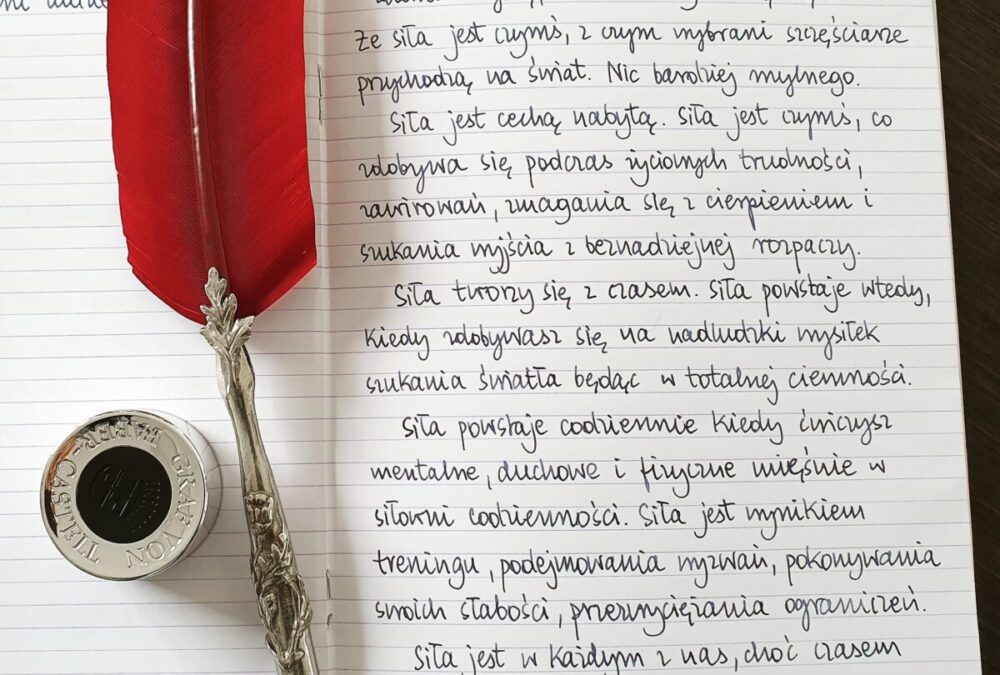 że siła jest czymś, z czym wybrani szczęściarze
przychodzą na świat. Nic bardziej mylnego.
Siła jest cechą nabytą. Siła jest czymś, co
zdobywa się podczas życiowych trudności,
zawirowań, zmagania się z cierpieniem i
szukania wyjścia z beznadziejnej rozpaczy.
Siła tworzy się z czasem. Siła powstaje wtedy,
kiedy zdobywasz się na nadludzki wysiłek
szukania światła będąc w totalnej ciemności.
Siła powstaje codziennie kiedy ćwiczysz
mentalne, duchowe i fizyczne mięśnie w
siłowni codzienności. Siła jest wynikiem
treningu, podejmowania wyzwań, pokonywania
swoich słabości, przezwyciężania ograniczeń.
Siła jest w każdym z nas, choć czasem
GRAF VON FABER-CASTELL